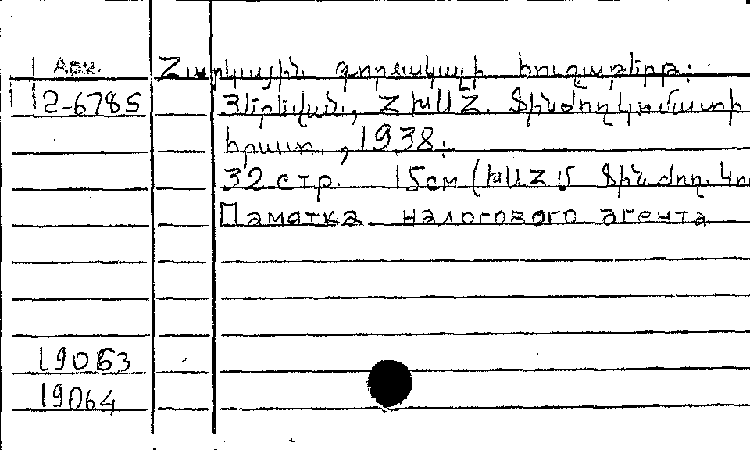 Арм. Հարկային գործակալի հուշաթերթ:
2-6785 Յերեվան, ՀԽՍՀ Ֆինժողկոմատի
հրատ., 1938:
32 стр. 15см (ԽՍՀՄ Ֆինժող. կո
Памятка налогового агента
19063
19064